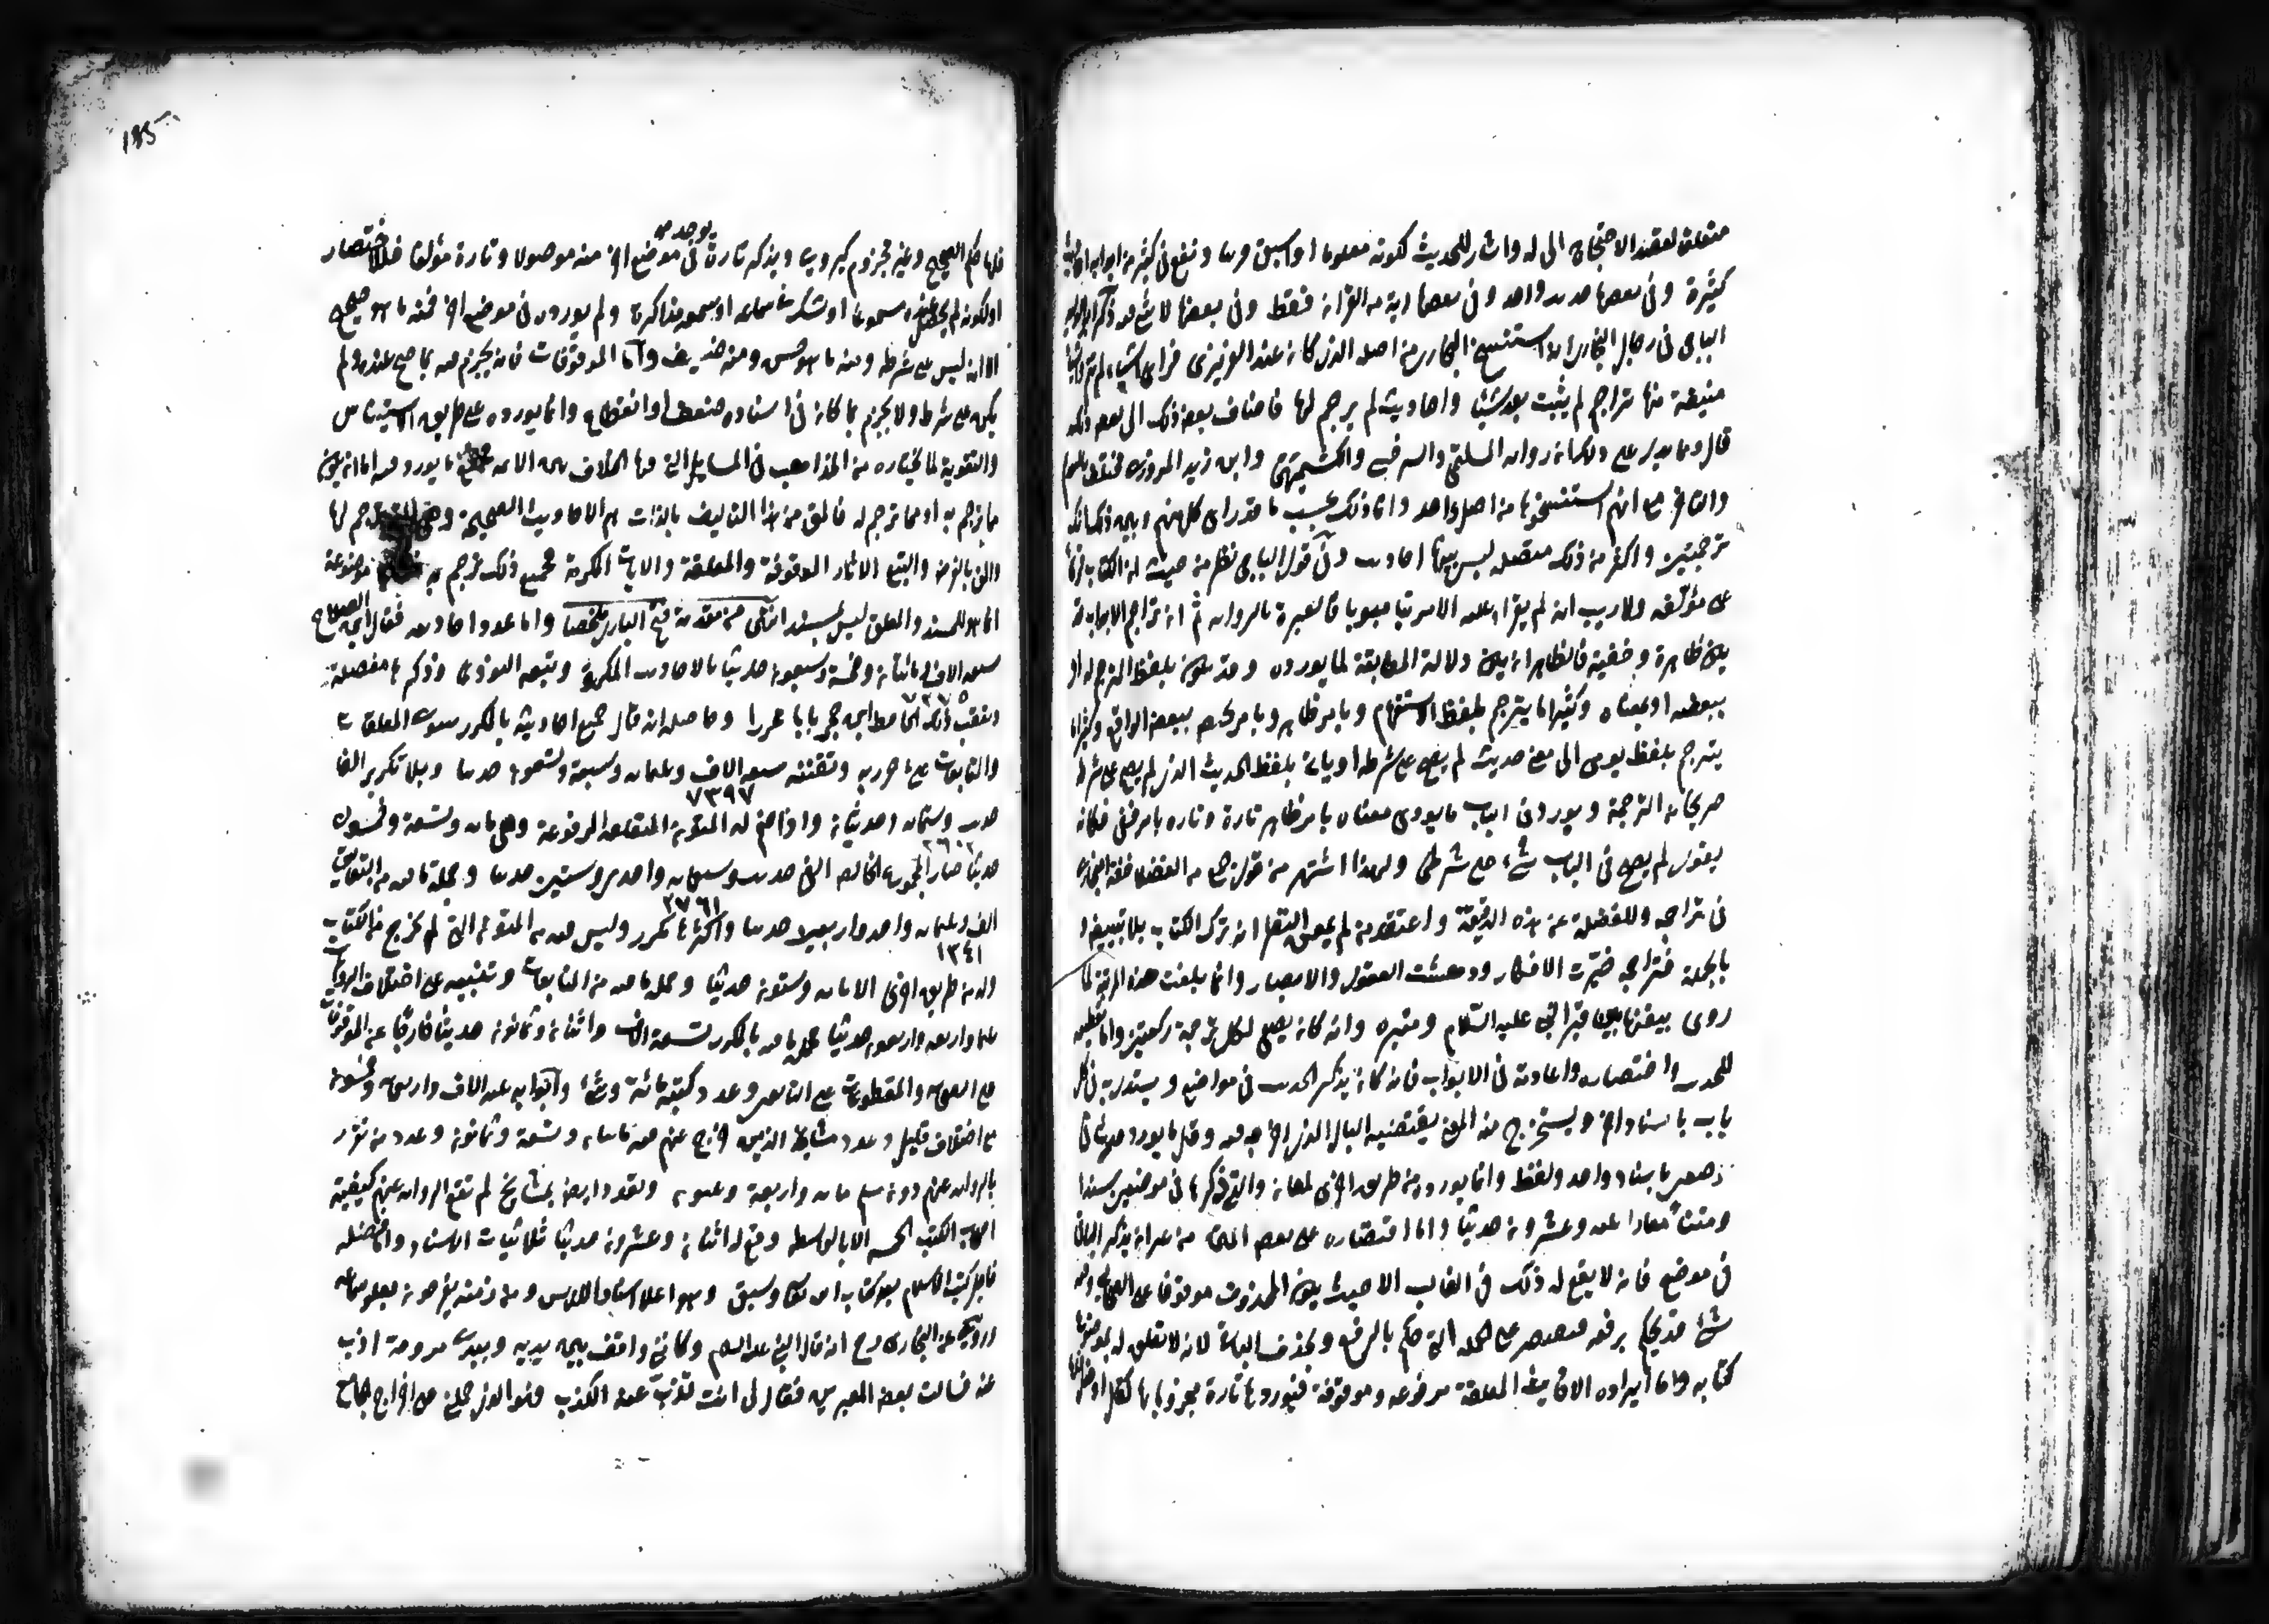 متعلق لقصد الاحتجاج الى له واشار للحديث لكونه معلوما او سبق قريبا و تقع فى كثير من ابوابه احاديث
كثيرة وفى بعضها حديث واحد وفى بعضها اية من القران فقط وفى بعضها لا شئ فيه ذكر ابو الوليد
الباجى فى رجال البخارى انه استنسخ البخارى من اصله الذى كان عند الفربرى فراى اشياء لم تتم واشياء
مبيضة منها تراجم لم يثبت بعدها شيئا واحاديث لم يترجم لها فاضاف بعض ذلك الى بعض ذلك
قال ومما يدل على ذلك ان رواية المستملى والسرخسى والكشميهنى وابى زيد المروزى مختلفة بالتقديم
والتاخير مع انهم استنسخوها من اصل واحد وانما ذلك بحسب ما قدر اى كل منهم ويبين ذلك انك
ترجمتين واكثر من ذلك متصلة ليس بينها احاديث وفى قول الباجى نظر من حيث ان الكتاب قرئ
على مؤلفه ولا ريب انه لم يقرا عليه الا مرتبا مبوبا فالعبرة بالرواية ثم ان تراجم الابواب قد
يكون ظاهرة وخفية فالظاهر ان يكون دلالة المطابقة لما يورده وقد يكون بلفظ المترجم له او
ببعضه او بمعناه وكثيرا ما يترجم بلفظ الاستفهام وبامر ظاهر وبامر يختص ببعض الوقائع وكثيرا ما
يترجم بلفظ يومى الى معنى حديث لم يصح على شرطه او ياتى بلفظ الحديث الذى لم يصح على شرطه
صريحا فى الترجمة ويورد فى الباب ما يؤدى معناه بامر ظاهر تارة وتارة بامر خفى فكانه
يقول لم يصح فى الباب شئ على شرطى ولهذا اشتهر من قول جمع من الفضلاء فقه البخارى
فى تراجمه وللغفلة عن هذه الدقيقة واعتقد من لم يمعن النظر انه ترك الكتاب بلا تبييض و
بالجملة فتراجمه حيرت الافكار ودهشت العقول والابصار وانما بلغت هذه المرتبة لما
روى بيضها بين قبر النبى عليه السلام ومنبره وانه كان يصلى لكل ترجمة ركعتين واما تقطيعه
للحديث واختصاره واعادته فى الابواب فانه كان يذكر الحديث فى مواضع ويستدل به فى كل
باب باسناد اخر ويستخرج منه المعنى يقتضيه الباب الذى اخرجه فيه وقل ما يورد حديثا فى
موضعين باسناد واحد ولفظ وانما يورده من طريق اخرى لمعان والتى ذكرها فى موضعين سندا
ومتنا معادا ثلثة وعشرون حديثا واما اقتصاره على بعض المتن من غير ان يذكر الباقى
فى موضع فانه لا يقع له ذلك فى الغالب الا حيث يكون المحذوف موقوفا على الصحابى وفيه
شئ قد يحكم برفعه فيقتصر على الجملة التى حكم بالرفع ويحذف الباقى لانه لا تعلق له بموضوع
كتابه واما ايراده الاحاديث المعلقة مرفوعة وموقوفة فيوردها تارة مجزوما بها كقال او فعل
فلها حكم الصحيح وغير مجزوم كيروى ويذكر تارة يوجد فى موضع اخر منه موصولا وتارة مؤلفا فللاختصار
او لكونه لم يحصل عنده مسموعا او شك فى سماعه او سمعه مذاكرة ولم يورده فى موضع اخر فمنه ما هو صحيح
الا انه ليس على شرطه ومنه ما هو حسن ومنه ضعيف واما الموقوفات فانه يجزم فيه بما صح عنده ولم
يكن على شرطه ولا يجزم بما كان فى اسناده ضعف او انقطاع وانما يورده على طريق الاستيناس
والتقوية لما يختاره من المذاهب فى المسائل التى فيها الخلاف بين الائمة فجميع ما يورد فيه اما ان يكون
ما ترجم به او مما ترجم له فالمق من هذا التاليف بالذات هو الاحاديث الصحيحة وهى التى ترجم لها
والمق بالعرض والتبع الاثار الموقوفة والمعلقة والايات المكرمة فجميع ذلك ترجم به موضوعة
انما هو للمسند والمعلق ليس بمسند انتهى من مقدمة فتح البارى ملخصا واما عدد احاديثه فقال ابن الصلاح
سبعة الاف ومائتان وخمسة وسبعون حديثا بالاحاديث المكررة وتبعه النووى وذكرها مفصلة
٧٢٧٥
وتعقب ذلك الحافظ ابن حجر بابا محررا وحاصله انه قال جميع احاديثه بالمكرر سوى المعلقات
والتابعات على ما حررته وتقنته سبعة الاف وثلثمائة وسبعة وتسعون حديثا وبلا تكرير الفا
٧٣٩٧
حديث وستمائة وحديثان واذا ضم له المتون المتعلقة المرفوعة وهى مائة وتسعة وخمسون
٢٦٠٢
حديثا صار المجموع الخالص الفى حديث وسبعمائة واحدى وستين حديثا وجملة ما فيه من التعاليق
٢٧٦١
الف وثلثمائة واحد واربعون حديثا واكثرها مكرر وليس فيه من المتون التى لم تخرج فى الكتاب
١٣٤١
ولو من طريق اخرى الا مائة وستون حديثا وجملة ما فيه من التابعات وتنبيه على اختلاف الروايات
ثلثمائة واربعة واربعون حديثا فجملة ما فيه بالمكرر تسعة الاف واثنان وثمانون حديثا خارجا عن الموقوفات
على الصحابة والمقطوعات على التابعين وعدد كتبه مائة وشئ وابوابه ثلثة الاف واربعمائة وخمسون
مع اختلاف قليل وعدد مشايخه الذين خرج عنهم فيه مائتان وتسعة وثمانون وعدد من تفرد
بالرواية عنهم دون مسلم مائة واربعة وثلثون وتفرد ايضا بمشايخ لم تقع الرواية عنهم كبقية
اصحاب الكتب الخمسة الا بالواسطة وقع له اثنان وعشرون حديثا ثلاثيات الاسناد واما فضله
فاجل كتب الاسلام بعد كتاب الله كما سبق وهو اعلا اسنادا للناس ومن زمنه يفرحون بعلو سماعه
وروى عن البخارى رح انه قال رايت النبى عليه السلام وكاننى واقف بين يديه وبيدى مروحة اذب
عنه فسالت بعض المعبرين فقال لى انت تذب عنه الكذب فهو الذى حملنى على اخراج الجامع